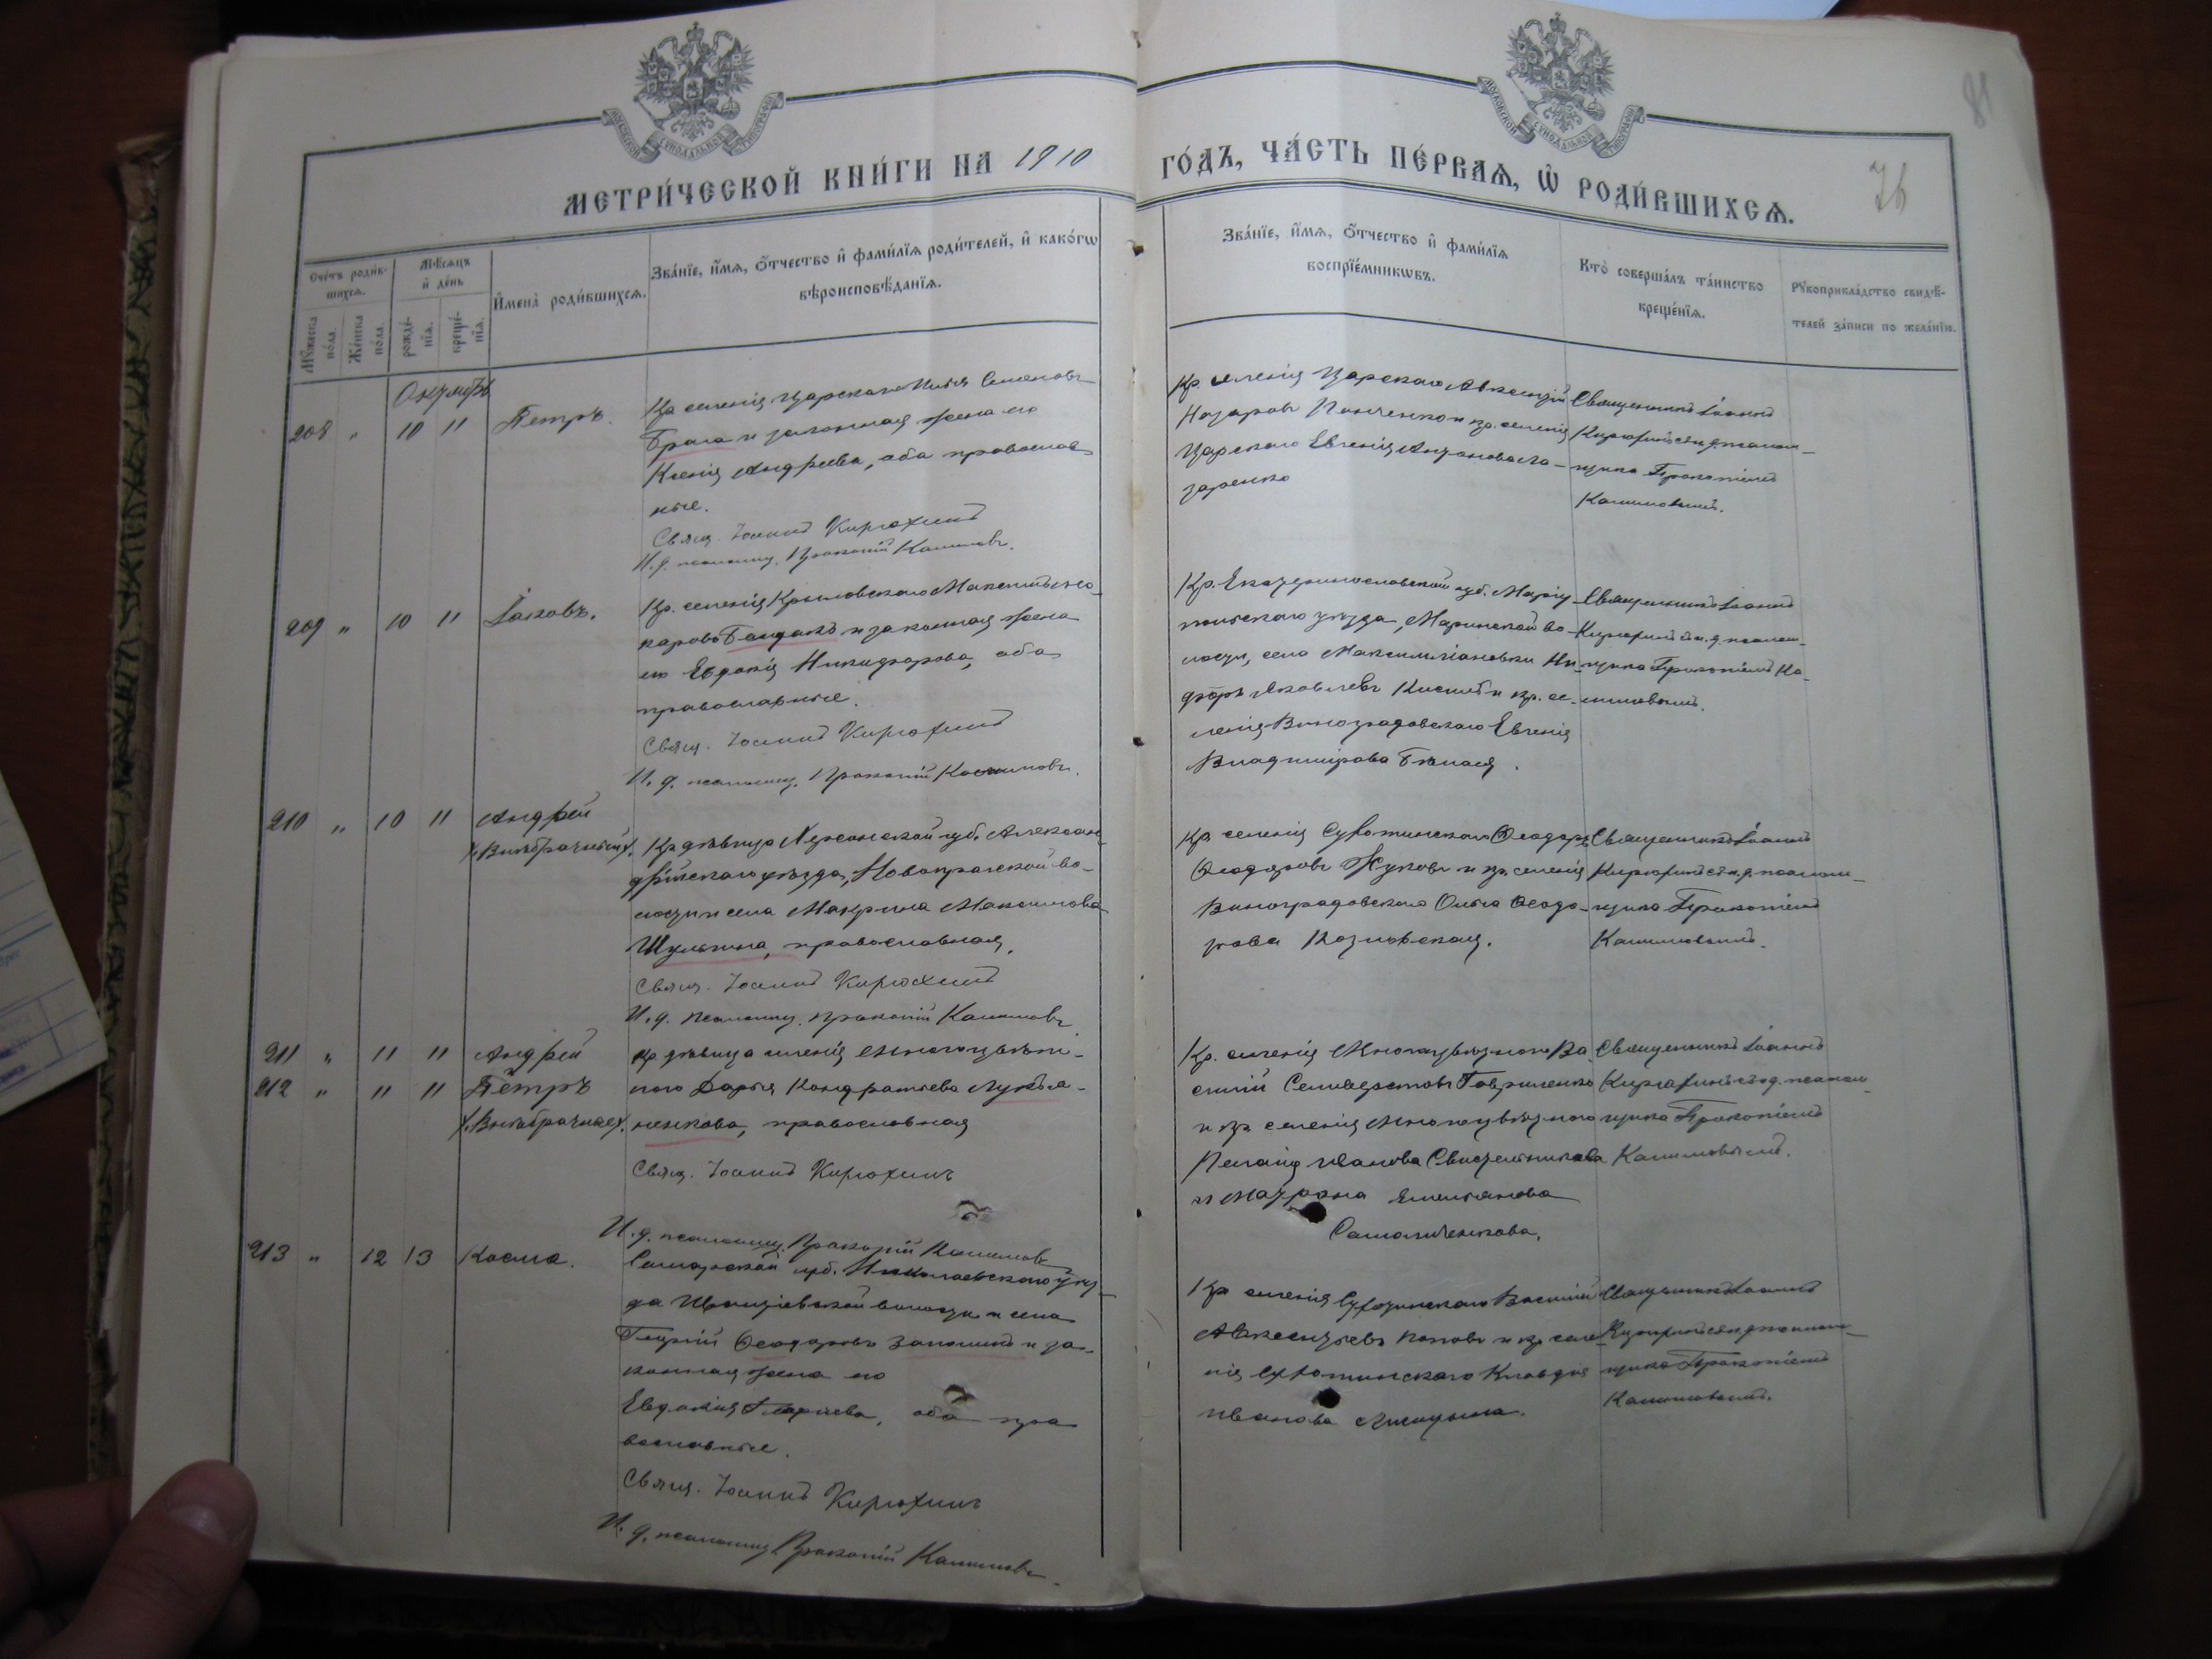 МЕТРИ́ЧЕСКОЙ КНИ́ГИ НА 1910 ГО́ДЪ, ЧА́СТЬ ПЕ́РВАѦ, Ѡ҆ РОДИ́ВШИХСѦ.
81
76
МОСКОВСКОЙ СѴНОДАЛЬНОЙ ТИПОГРАФІИ
МОСКОВСКОЙ СѴНОДАЛЬНОЙ ТИПОГРАФІИ
Сче́тъ роди́в-
шихсѧ.
Мѣ́сѧцъ
и҆ де́нь
И҆мена̀ роди́вшихсѧ.
Зва́нїе, и҆́мѧ, ѻ҆́тчество и҆ фами́лїѧ роди́телей, и҆ како́гѡ
вѣроисповѣ́данїѧ.
Мꙋ́жеска
по́ла.
Же́нска
по́ла.
рожде́-
нїѧ.
креще́-
нїѧ.
Зва́нїе, и҆́мѧ, ѻ҆́тчество и҆ фами́лїѧ
воспрїе́мникѡвъ.
Кто̀ соверша́лъ та́инство
креще́нїѧ.
Рꙋкоприкла́дство свидѣ́-
телей за́писи по жела́нїю.
Октябрь
208 " 10 11 Петръ.
Кр. селенія Царскаго Илья Семеновъ
Брага и законная жена его
Ксенія Андреева, оба православ
ные.
Свящ. Іоаннъ Кирюхинъ
И. д. псаломщ. Прокопій Калиновъ.
Кр. селенія Царскаго Авксентій
Назаровъ Панченко и кр. селенія
Царскаго Евгенія Антонова Ла-
заренко
Священникъ Іоаннъ
Кирюхинъ съ и. д. псалом-
щика Прокопіемъ
Калиновымъ.
209 " 10 11 Іаковъ.
Кр. селенія Крыловскаго Максимъ Ма-
каровъ Бандакъ и законная жена
его Евдокія Никифорова, оба
православные.
Свящ. Іоаннъ Кирюхинъ
И. д. псаломщ. Прокопій Калиновъ.
Кр. Екатеринославской губ. Маріу-
польскаго уѣзда, Маринской во-
лости, села Максимиліановки Ни-
форъ Яковлевъ Кислый и кр. се-
ленія Виноградовскаго Евгенія
Владимірова Бѣлая.
Священникъ Іоаннъ
Кирюхинъ съ и. д. псалом-
щика Прокопіемъ Ка-
линовымъ.
210 " 10 11 Андрей
(Внѣбрачный).
Кр. дѣвица Херсонской губ. Александ
рійскаго уѣзда, Новопражской во-
лости и села Макрина Максимова
Шульгина, православная.
Свящ. Іоаннъ Кирюхинъ
И. д. псаломщ. Прокопій Калиновъ
Кр. селенія Сухотинскаго Ѳеодоръ
Ѳеодоровъ Жуковъ и кр. селенія
Виноградовскаго Ольга Ѳеодо-
рова Козловская.
Священникъ Іоаннъ
Кирюхинъ съ и. д. псалом-
щика Прокопіемъ
Калиновымъ.
211 " 11 11 Андрей
212 " 11 11 Петръ
(Внѣбрачные).
Кр. дѣвица селенія Многоцвѣт-
наго Дарья Кондратьева Лукья-
ненкова, православная
Свящ. Іоаннъ Кирюхинъ
И. д. псаломщ. Прокопій Калиновъ
Кр. селенія Многоцвѣтнаго Ва
силій Селиверстовъ Гавриленко
и кр. селенія Многоцвѣтнаго
Пелагія Иванова Свистельникова
и Матрона Емельянова
Самойленкова.
Священникъ Іоаннъ
Кирюхинъ съ и. д. псалом-
щика Прокопіемъ
Калиновымъ.
213 " 12 13 Косма.
Самарской губ. Николаевскаго уѣз-
да волости и села
Георгій Ѳеодоровъ и за-
конная жена его
Евдокія, оба пра
вославные.
Свящ. Іоаннъ Кирюхинъ
И. д. псаломщ. Прокопій Калиновъ.
Кр. селенія Сухотинскаго Василій
Авксентьевъ Поповъ и кр. селе
нія Сухотинскаго Клавдія
Иванова Лисицына.
Священникъ Іоаннъ
Кирюхинъ съ и. д. псалом-
щика Прокопіемъ
Калиновымъ.